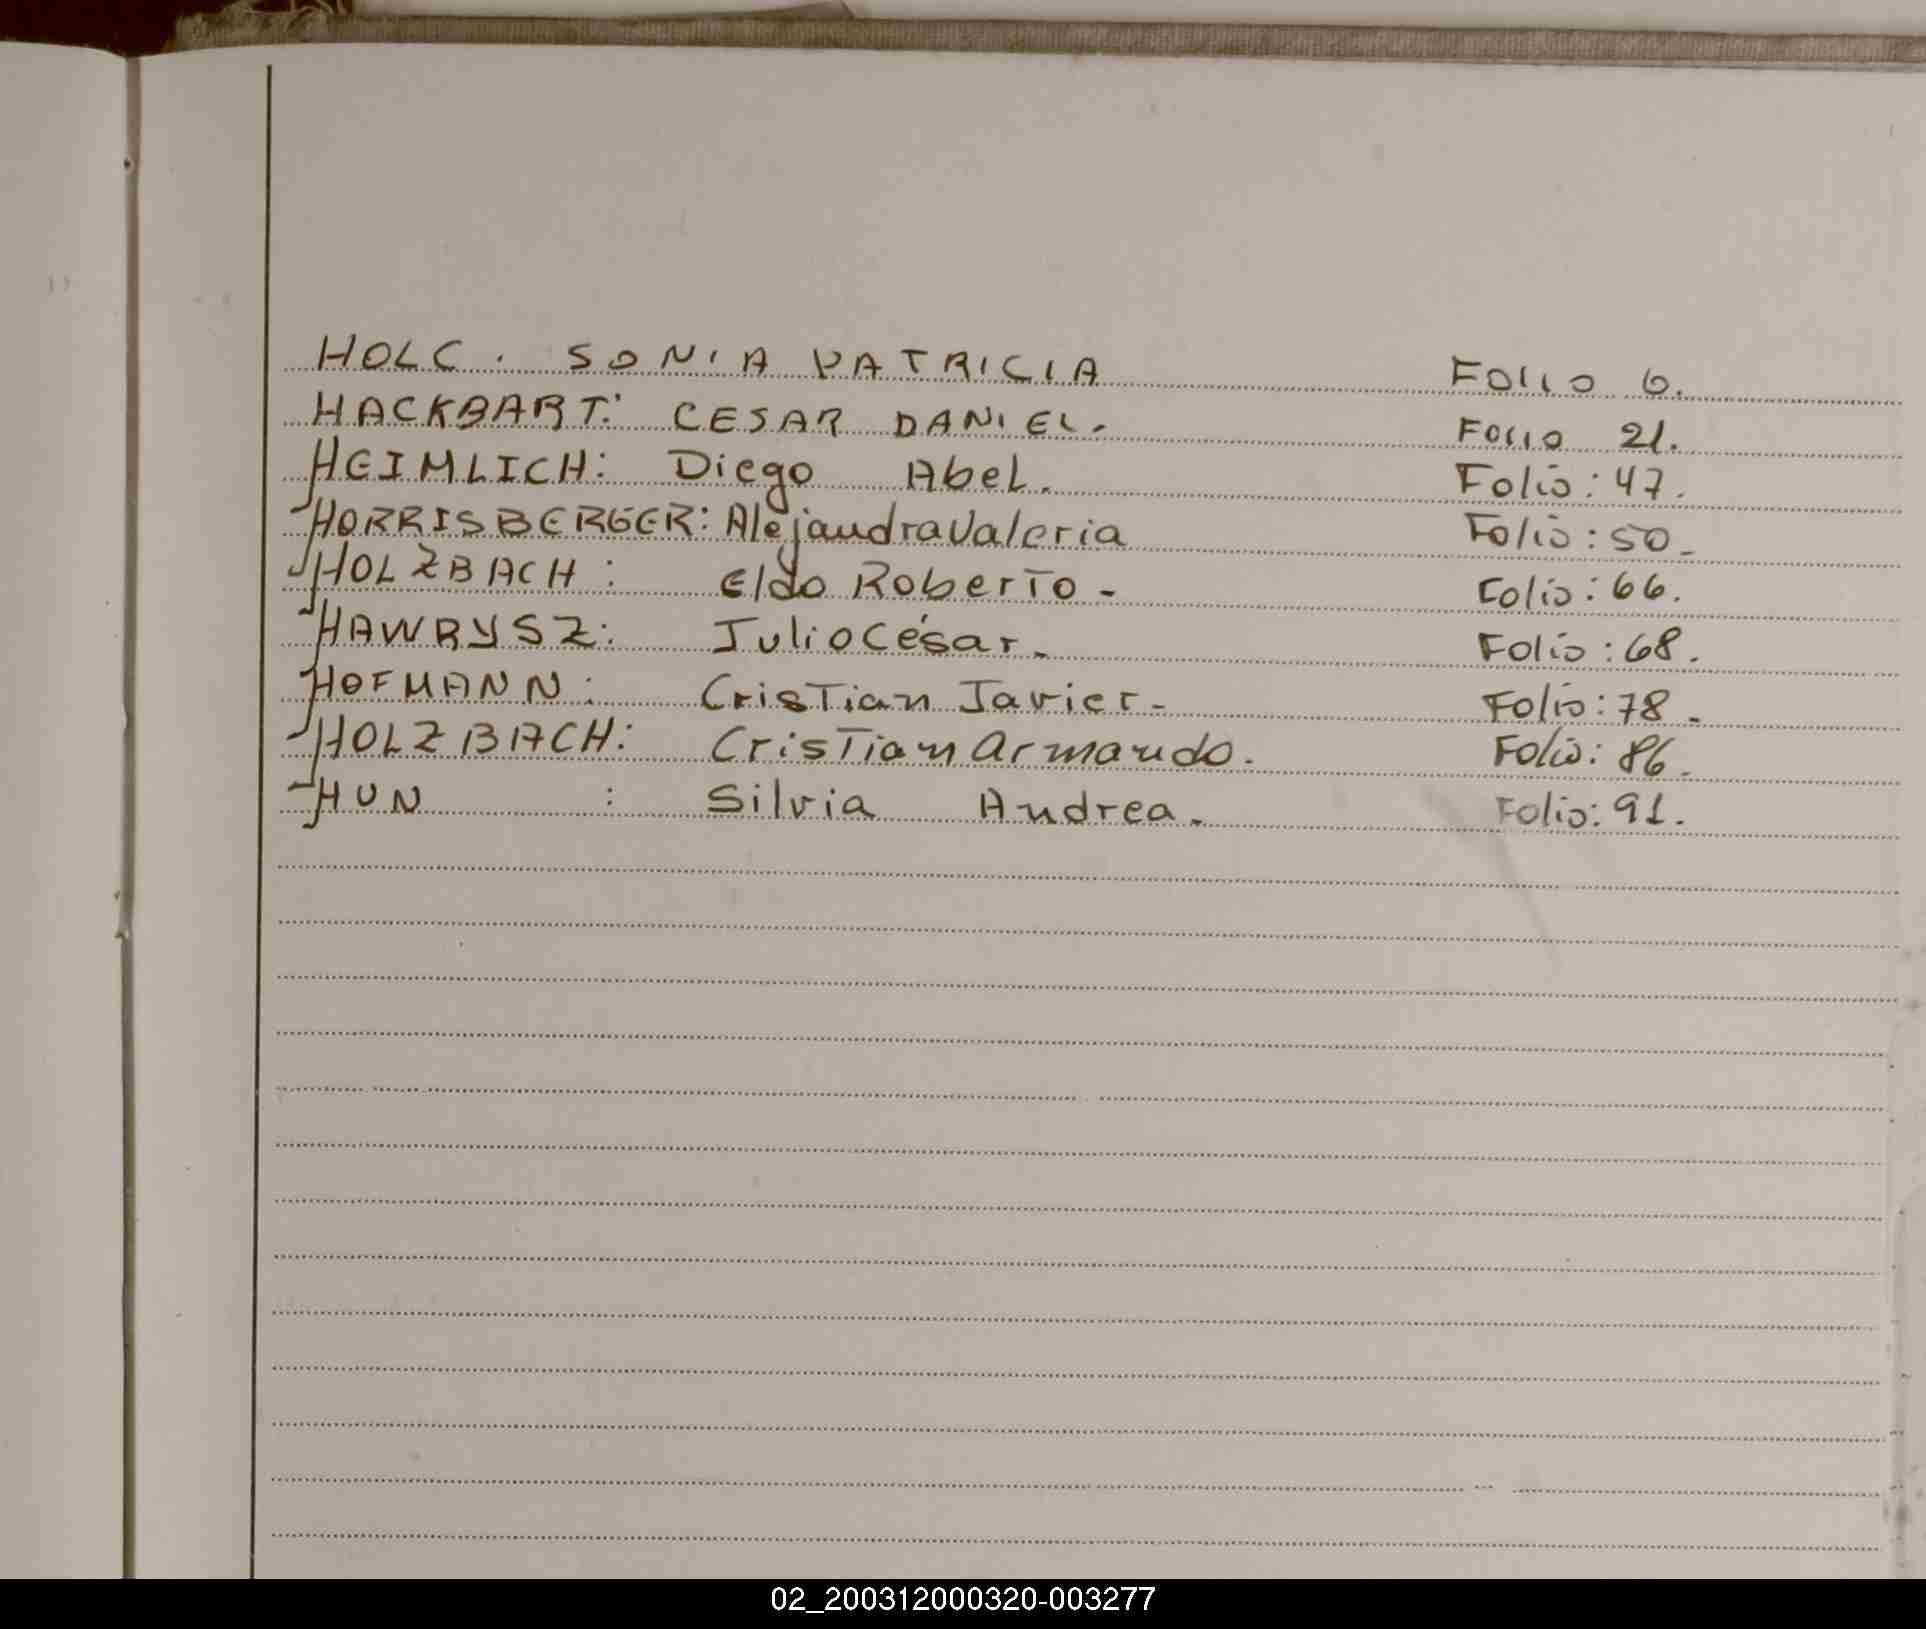 HOLC. SONIA PATRICIA FOLIO 6.
HACKBART: CESAR DANIEL. FOLIO 21.
HEIMLICH: Diego Abel. Folio: 47.
HORRISBERGER: Alejandra Valeria Folio: 50_
HOLZBACH: Eldo Roberto - Folio: 66.
HAWRYSZ: Julio César. Folio: 68.
HOFMANN: Cristian Javier - Folio: 78.
HOLZBACH: Cristian Armando. Folio: 86.
HUN : Silvia Andrea. Folio: 91.
02_200312000320-003277